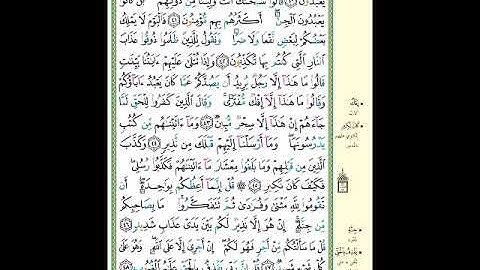 يَعْبُدُونَ ٤٠ قَالُوا۟ سُبْحَـٰنَكَ أَنتَ وَلِيُّنَا مِن دُونِهِم ۖ بَلْ
يَعْبُدُونَ ٱلْجِنَّ ۖ أَكْثَرُهُم بِهِم مُّؤْمِنُونَ ٤١ فَٱلْيَوْمَ لَا يَمْلِكُ
بَعْضُكُمْ لِبَعْضٍ نَّفْعًا وَلَا ضَرًّا وَنَقُولُ لِلَّذِينَ ظَلَمُوا۟ ذُوقُوا۟ عَذَابَ
ٱلنَّارِ ٱلَّتِى كُنتُم بِهَا تُكَذِّبُونَ ٤٢ وَإِذَا تُتْلَىٰ عَلَيْهِمْ ءَايَـٰتُنَا بَيِّنَـٰتٍ
قَالُوا۟ مَا هَـٰذَآ إِلَّا رَجُلٌ يُرِيدُ أَن يَصُدَّكُمْ عَمَّا كَانَ يَعْبُدُ ءَابَآؤُكُمْ
وَقَالُوا۟ مَا هَـٰذَآ إِلَّآ إِفْكٌ مُّفْتَرًى ۚ وَقَالَ ٱلَّذِينَ كَفَرُوا۟ لِلْحَقِّ لَمَّا
جَآءَهُمْ إِنْ هَـٰذَآ إِلَّا سِحْرٌ مُّبِينٌ ٤٣ وَمَآ ءَاتَيْنَـٰهُم مِّن كُتُبٍ
يَدْرُسُونَهَا ۖ وَمَآ أَرْسَلْنَآ إِلَيْهِمْ قَبْلَكَ مِن نَّذِيرٍ ٤٤ وَكَذَّبَ
ٱلَّذِينَ مِن قَبْلِهِمْ وَمَا بَلَغُوا۟ مِعْشَارَ مَآ ءَاتَيْنَـٰهُمْ فَكَذَّبُوا۟ رُسُلِى ۖ
فَكَيْفَ كَانَ نَكِيرِ ٤٥ ۞ قُلْ إِنَّمَآ أَعِظُكُم بِوَٰحِدَةٍ ۖ أَن
تَقُومُوا۟ لِلَّهِ مَثْنَىٰ وَفُرَٰدَىٰ ثُمَّ تَتَفَكَّرُوا۟ ۚ مَا بِصَاحِبِكُم
مِّن جِنَّةٍ ۚ إِنْ هُوَ إِلَّا نَذِيرٌ لَّكُم بَيْنَ يَدَىْ عَذَابٍ شَدِيدٍ ٤٦
قُلْ مَا سَأَلْتُكُم مِّنْ أَجْرٍ فَهُوَ لَكُمْ ۖ إِنْ أَجْرِىَ إِلَّا عَلَى ٱللَّهِ ۖ وَهُوَ عَلَىٰ
كُلِّ شَىْءٍ شَهِيدٌ ٤٧ قُلْ إِنَّ رَبِّى يَقْذِفُ بِٱلْحَقِّ